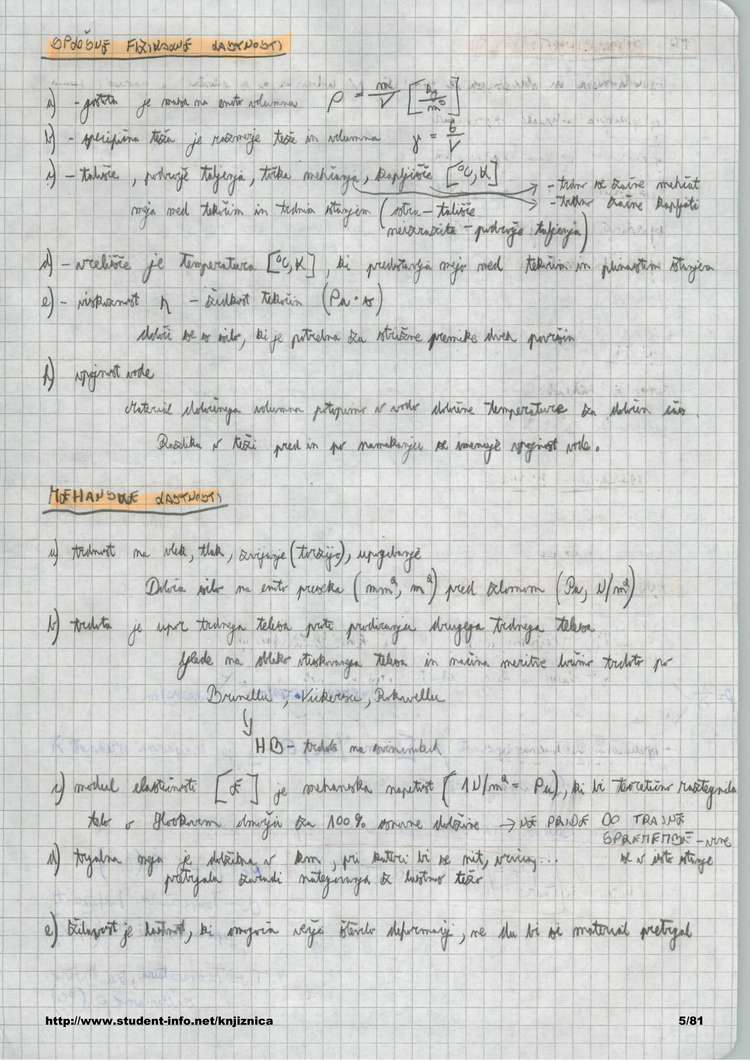 SPLOŠNE FIZIKALNE LASTNOSTI
a) - gostota je masa na enoto volumna ρ = m/V [kg/m³]
b) - specifična teža je razmerje teže in volumna γ = G/V
c) - tališče, področje taljenja, točka mehčanja, kapljišče [°C, K] → - trdno se začne mehčat
→ - trdno začne kapljati
meja med tekočim in trdnim stanjem (čista - tališče
nečista - področje taljenja)
d) - vrelišče je temperatura [°C, K], ki predstavlja mejo med tekočim in plinastim stanjem
e) - viskoznost η - židkost tekočin (Pa·s)
določi se s silo, ki je potrebna za strižne premike dveh površin
f) vpojnost vode
Material določenega volumna potopimo v vodo določene temperature za določen čas.
Razlika v teži pred in po namakanju se imenuje vpojnost vode.
MEHANSKE LASTNOSTI
a) trdnost na vlek, tlak, zvijanje (torzijo), upogibanje
Določa silo na enoto preseka (mm², m²) pred zlomom (Pa, N/m²)
b) trdota je upor trdnega telesa proti prodiranju drugega trdnega telesa.
Glede na obliko vtiskovanega telesa in načina meritve ločimo trdoto po
Brinellu, Vickersu, Rokwellu
HB - trdota na
c) modul elastičnosti [E] je mehanska napetost (1N/m² = Pa), ki bi teoretično raztegnila
telo v Hookovem območju za 100% osnovne dolžine → NE PRIDE DO TRAJNE
SPREMEMBE - vrne
se v isto stanje
d) trgalna meja je dolžina v km, pri kateri bi se nit, ...
pretrgala zaradi nategovanja z lastno težo
e) žilavost je lastnost, ki omogoča večje število deformacij, ne da bi se material pretrgal
http://www.student-info.net/knjiznica 5/81